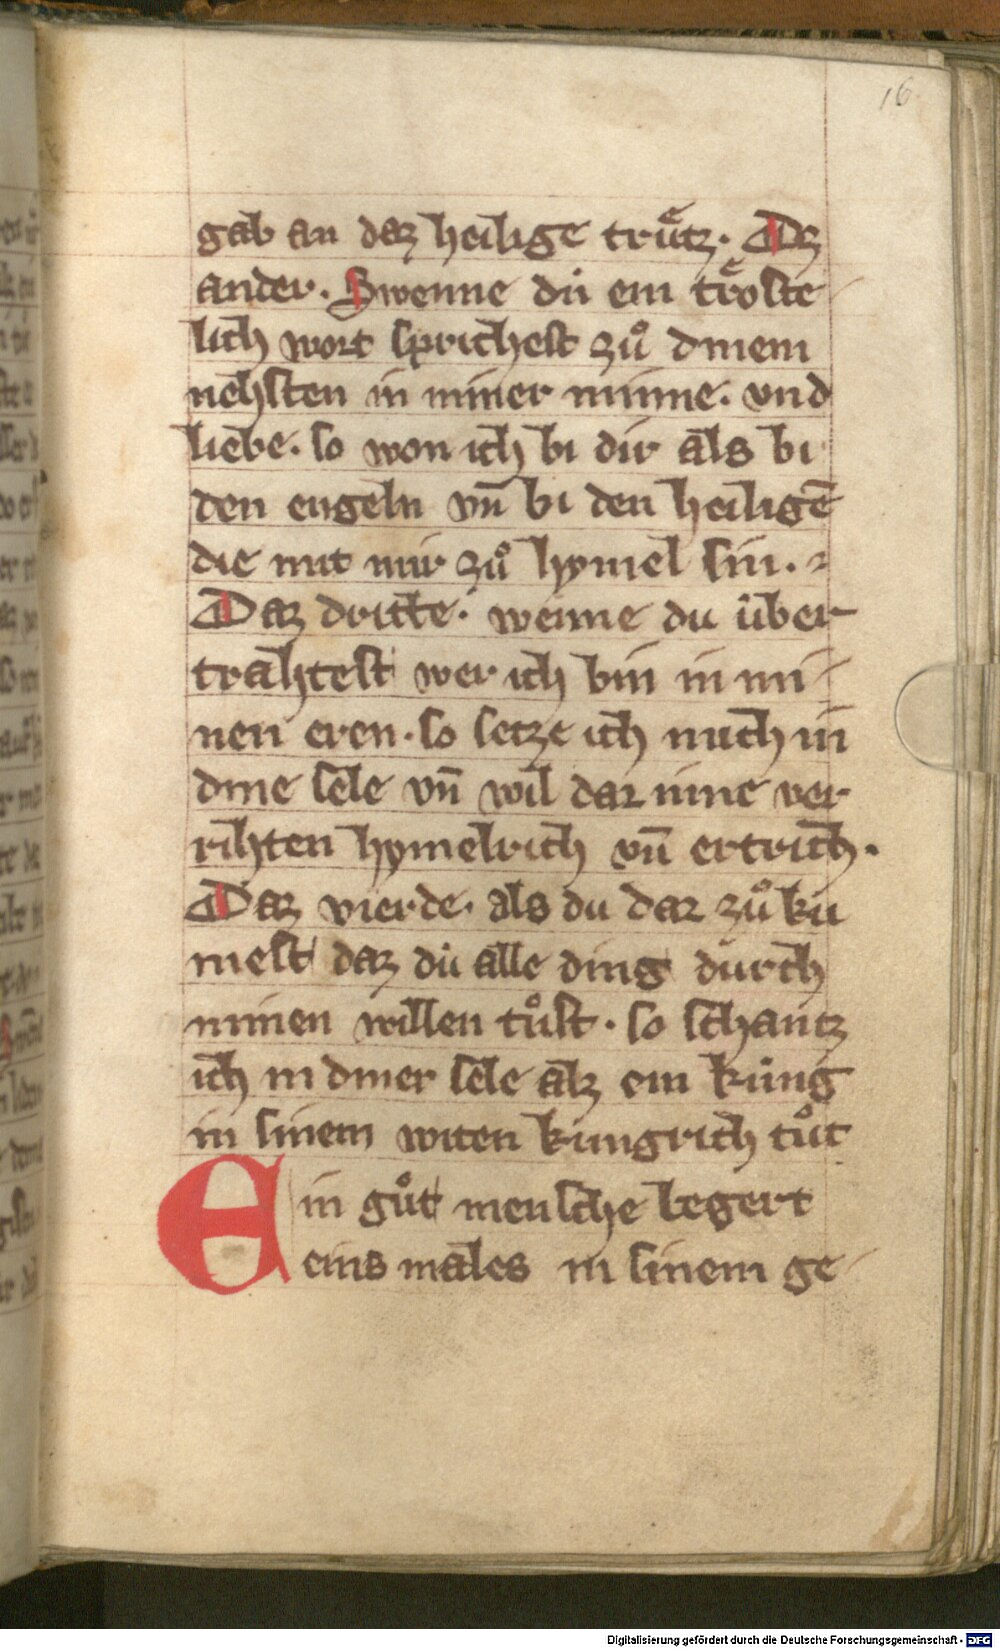 16
gab an daz heilige trűtz. Dz
ander. Swenne dů ein trőste
lich wort sprichest zů dinem
nehsten in miner minne. vnd
liebe. so won ich bi dir als bi
den engeln vn̄ bi den heiligē
die mit mir zů hymel sin.
Daz dritte. wenne du über
trahtest wer ich bin in mi
nen eren. so setze ich mich in
dine sele vn̄ wil dar inne ver
rihten hymelrich vn̄ ertrich.
Daz vierde. als du dar zů ku
mest daz dů alle ding durch
minen willen tůst. so schantz
ich in diner sele alz ein küng
in sinem witen kungrich tůt
Ein gůt mensche begert
eins males in sinem ge
Digitalisierung gefördert durch die Deutsche Forschungsgemeinschaft - DFG